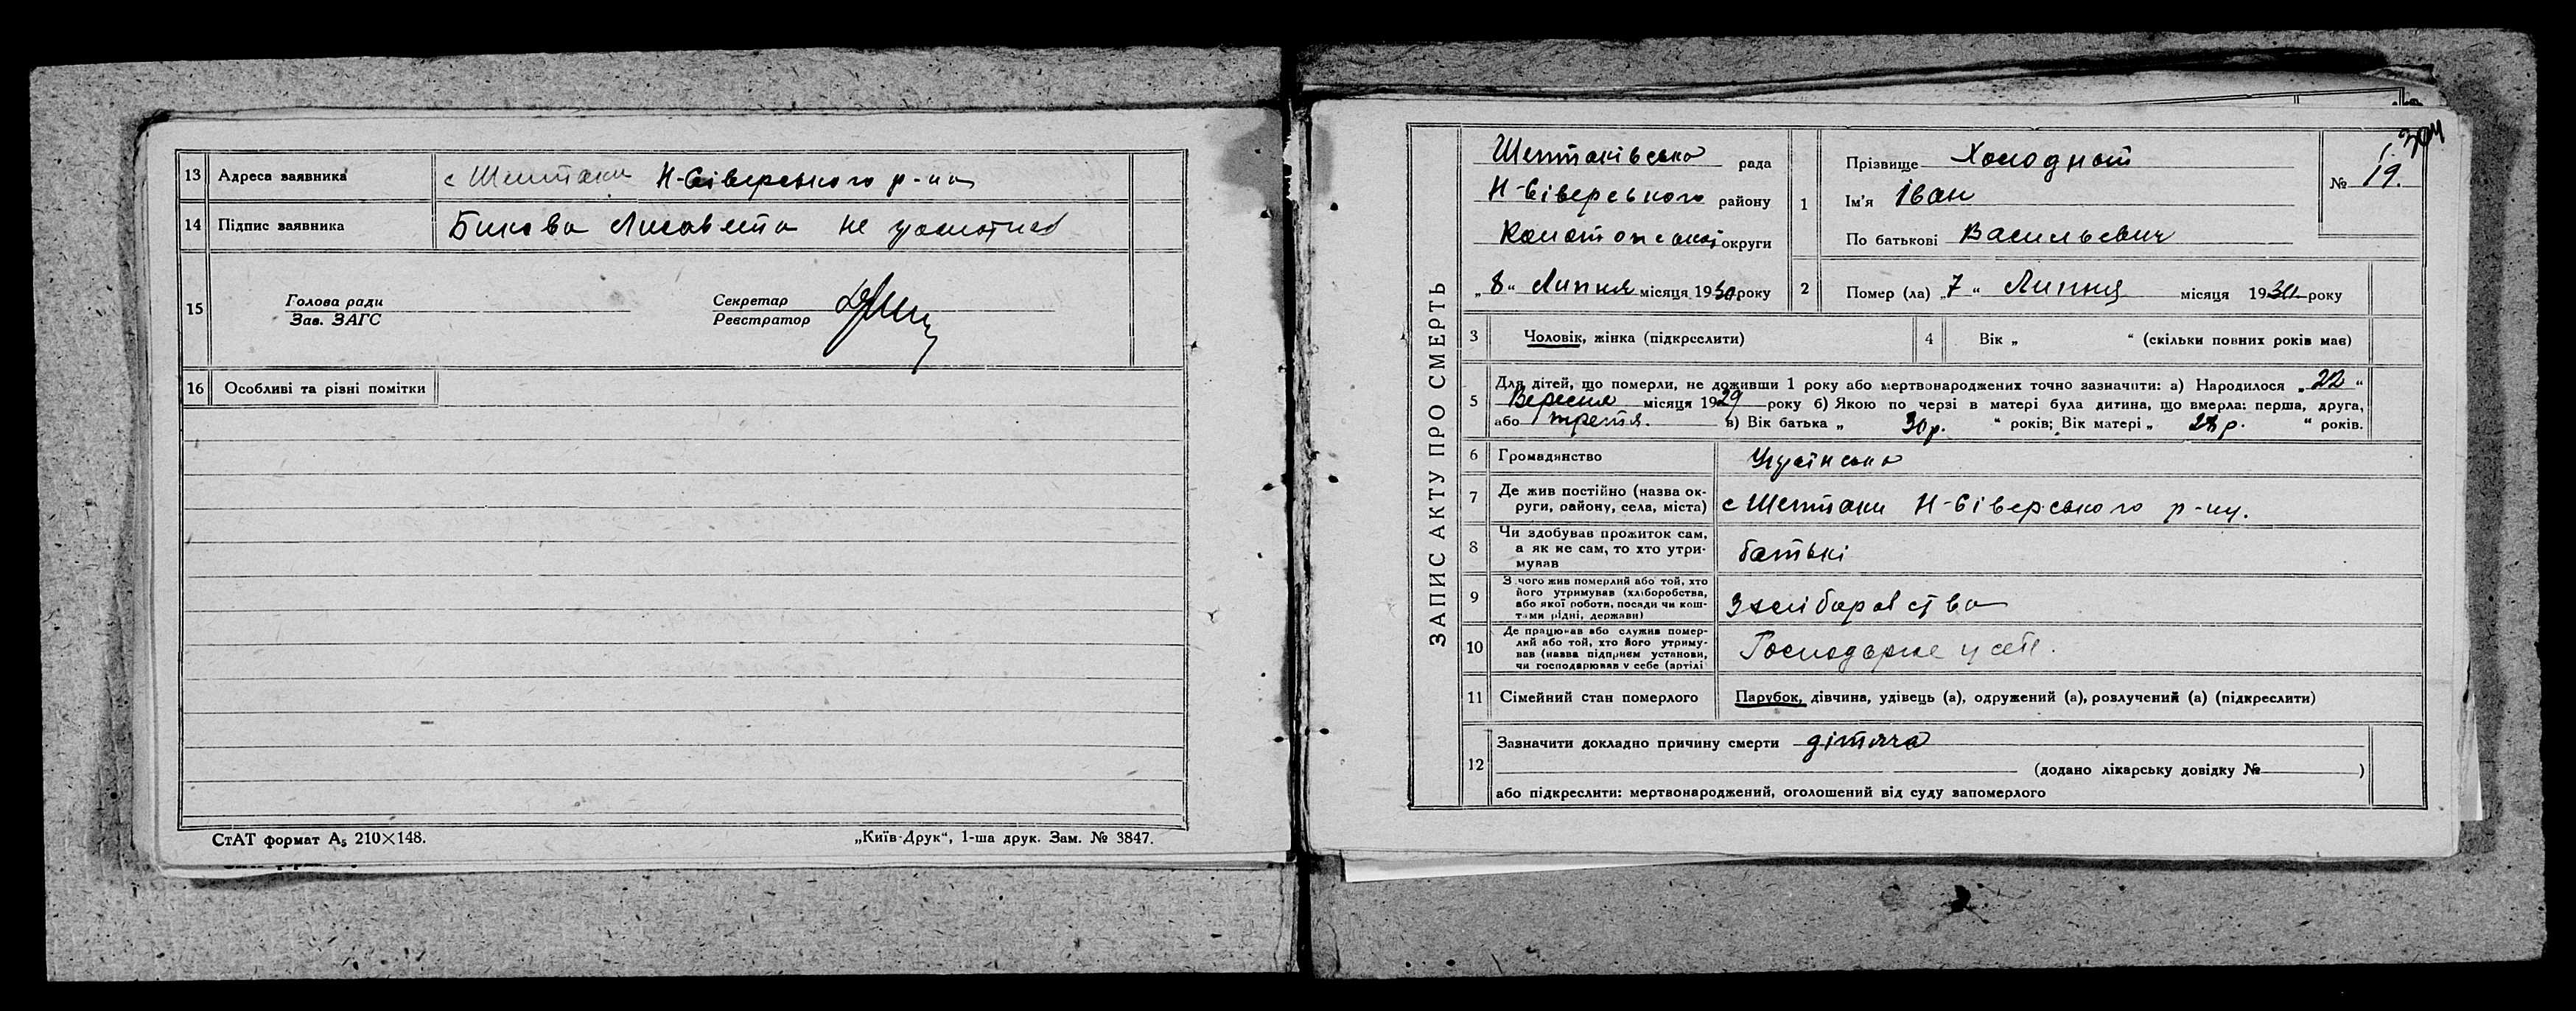 13 Адреса заявника с Шептаки Н-Сіверського р-на
14 Підпис заявника Бикова Лисавета не грамотна
15 Голова ради
Зав. ЗАГС
Секретар
Реєстратор
16 Особливі та різні помітки
СтАТ формат А₅ 210×148.
„Київ-Друк“, 1-ша друк. Зам. № 3847.
304
ЗАПИС АКТУ ПРО СМЕРТЬ
Шептаківська рада
Н-Сіверського району
Конотопської округи
„8“ Липня місяця 1930 року
1 Прізвище
Ім'я Іван
По батькові Васильевич
№ 19.
2 Помер (ла) „7“ Липня місяця 1930 року
3 Чоловік, жінка (підкреслити)
4 Вік „ “ (скільки повних років має)
5 Для дітей, що померли, не доживши 1 року або мертвонароджених точно зазначити: а) Народилося „22“
Вересня місяця 1929 року б) Якою по черзі в матері була дитина, що вмерла: перша, друга,
або третя. в) Вік батька „30 р. “ років; Вік матері „28 р. “ років.
6 Громадянство
7 Де жив постійно (назва ок-
руги, району, села, міста) с Шептаки Н-Сіверського р-ну.
8 Чи здобував прожиток сам,
а як не сам, то хто утри-
мував батькі
9 З чого жив померлий або той, хто
його утримував (хліборобства,
або якої роботи, посади чи кош-
тами рідні, держави) З хліборобства
10 Де працював або служив помер-
лий або той, хто його утриму-
вав (назва підприєм установи,
чи господарював у себе (артілі
11 Сімейний стан померлого Парубок, дівчина, удівець (а), одружений (а), розлучений (а) (підкреслити)
12 Зазначити докладно причину смерти дітяча
(додано лікарську довідку № )
або підкреслити: мертвонароджений, оголошений від суду запомерлого